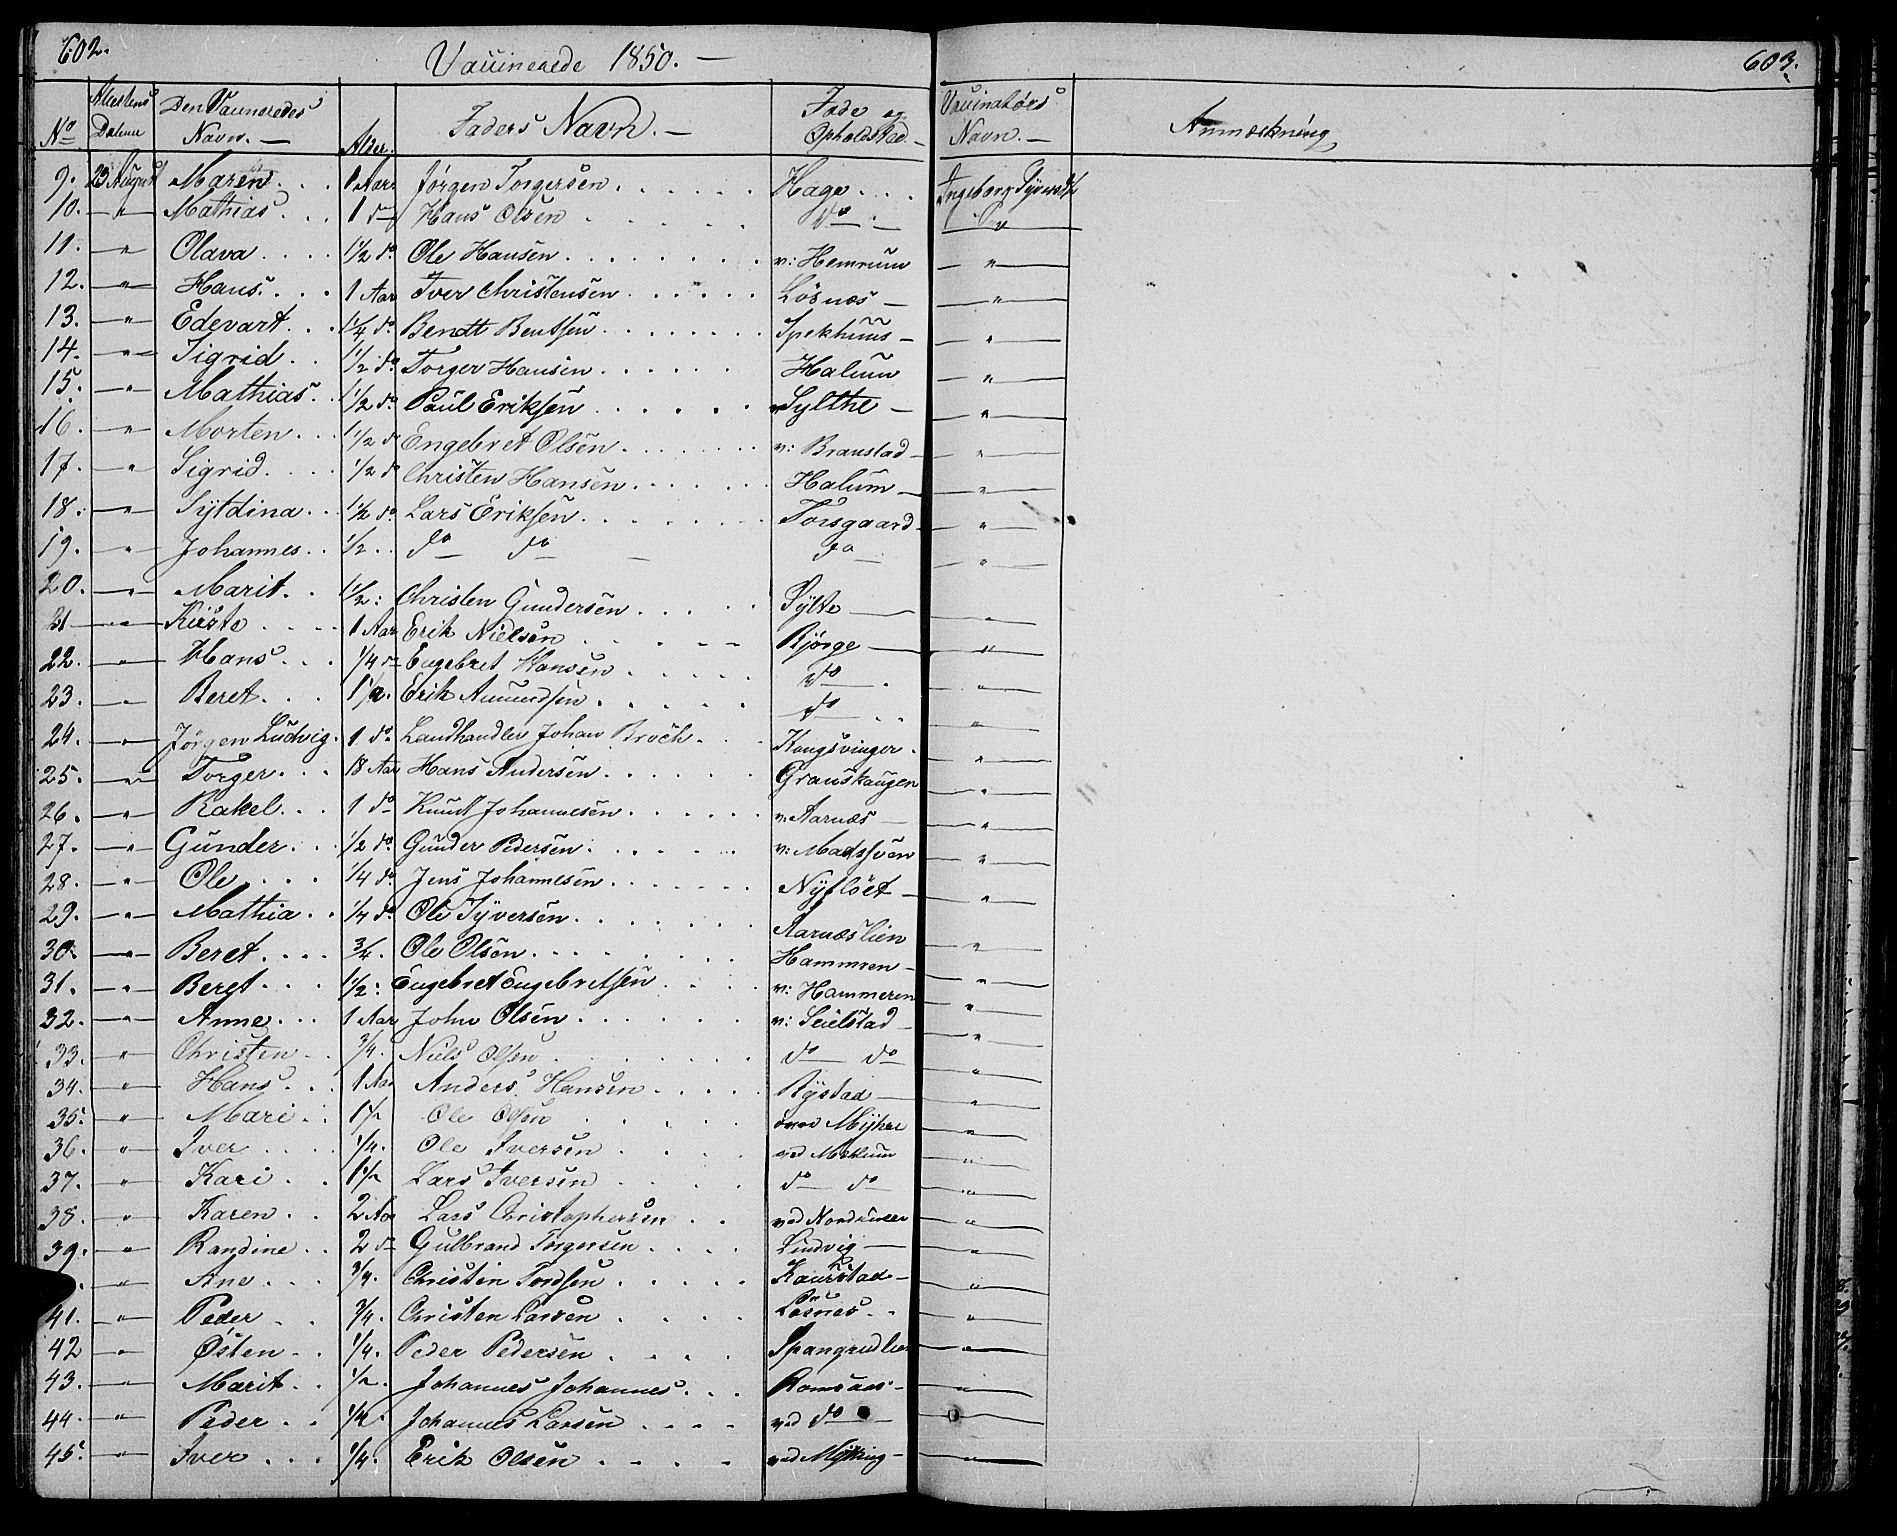 602. Vaccinerede 1850. — 603.
No Attestens Datum Den Vaccineredes Navn. — Alder. Faders Navn. — Føde og Opholdsted. — Vaccinatørs Navn. — Anmærkning
9. 29 August Maren. . . 1 Aar Jørgen Torgersen . . . . . Hage . . . Ingeborg
10. — " — Mathias. . . 1 do Hans Olsen . . . . do — " —
11. — " — Olava. . . . 1½ do. Ole Hansen . . . . . . . v: Hemrum — " —
12. — " — Hans. . . . 1 Aar Iver Christensen . . . . . Lösnæs — — " —
13. — " — Edevart. . . 1¼ do. Bendt Bentsen . . . . . . Spekhuus — — " —
14. — " — Sigrid. . . 1½ do. Torger Hansen . . . . . . Halum — " —
15. — " — Mathias. . 1½ do. Paul Eriksen . . . . . Sylthe — — " —
16. — " — Morten. . . 1½ do Engebret Olsen . . . . . . v: Branstad — — " —
17. — " — Sigrid. . . . ½ do Christen Hansen . . . . . Halum — — " —
18. — " — Sytdina . . . 1½ do. Lars Eriksen . . . . . . Torsgaard — — " —
19. — " — Johannes. . ½ . . do — do — do — — " —
20. — " — Marit. . 1½: Christen Gundersen . . . . Sylte — — " —
21 — " — Kirste . . . . 1 Aar Erik Nielsen . . . . Bjørge — — " —
22. — " — Hans. . . ¼ do Engebret Hansen . . . . do — . — " —
23. — " — Beret. . . 1½. Erik Amundsen . . . . . do — . . — " —
24. — " — Jørgen Ludvig. 1 do. Landhandler Johan Broch . . . Kongsvinger . — " —
25. — " — Torger . . . 18 Aar Hans Andersen . . . . . Granskaugen — " —
26. — " — Rakel. . . 1 do Knudt Johannesen . . . . . v: Aarnæs — — " —
27. — " — Gunder. . . ½ do. Gunder Pedersen . . . . . v: Madssven — " —
28. — " — Ole . . . . ¼ do. Jens Johannesen . . . . . . Nyfløet — — " —
29. — " — Mathia . . ¼ do Ole Syversen . . . . . . Aarnæslien — " —
30. — " — Beret . . . . ¾. Ole Olsen . . . . . . . . Hammren — — " —
31. — " — Beret . . . 1½: Engebret Engebretsen . . . . v: Hammeren — " —
32. — " — Anne. . . 1 Aar John Olsen . . . . . . v: Seielstad — — " —
33. — " — Christen . . ¾. Niels Olsen . . . . . . do — do — — " —
34. — " — Hans. . . 1 Aar Anders Hansen . . . . . Rystad — — " —
35. — " — Mari . . 1½ Ole Olsen . . . . . . — " —
36. — " — Iver . . . . ¼. Ole Iversen . . . . . — " —
37. — " — Kari . . 1½ Lars Iversen . . . . do — do — — " —
38. — " — Karen . . 2 Aar Lars Christophersen . . — " —
39. — " — Randine . . 2 do Gulbrand Torgersen . . . . Lindvig — — " —
— " — Ane . . . ¾. Christen Tordsen . . . . . Kaurstad — — " —
41. — " — Peder . . ¾. Christen Larsen . . . . Løsnes . . — " —
42 — " — Østen . . ¼. Peder Pedersen . . . . Spangrudlien — " —
43. — " — Marit . . ½. Johannes Johannes. . . Romsaas — — " —
44. — " — Peder . . ½. Johannes Larsen . . . . ved do — — " —
45. — " — Iver . . . ¼. Erik Olsen . . . . ved Myking — — " —